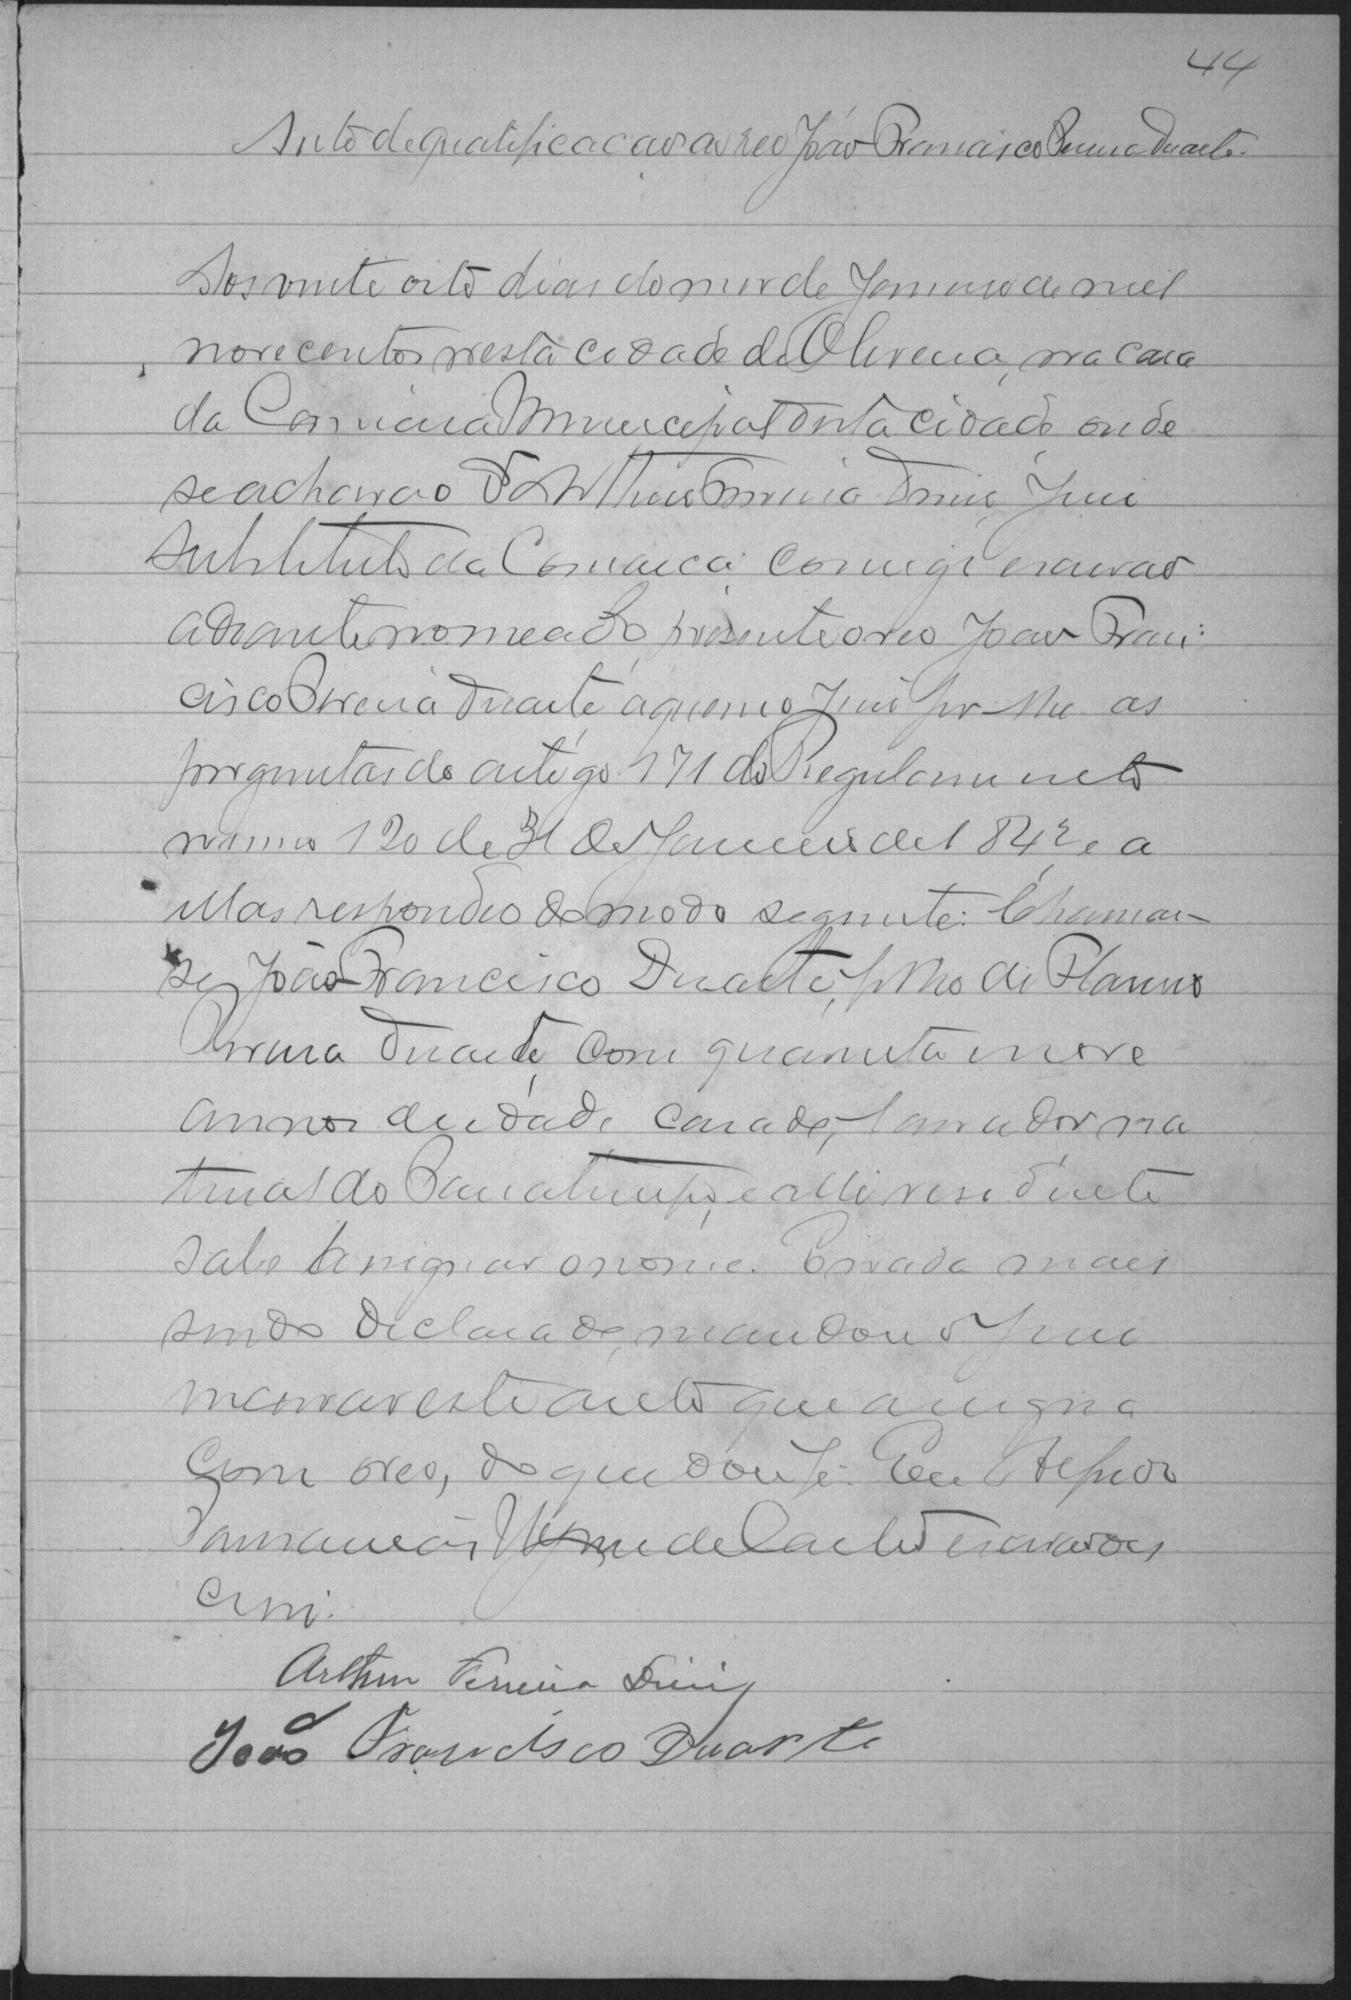 44
Auto de qualificação ao reo João Francisco Pereira Duarte.
Aos vinte oito dias do mez de Janeiro de mil
novecentos nesta cidade de Oliveira, na casa
da Camara Municipal desta cidade onde
se achava o Dr Arthur Ferreira Diniz, Juiz
Substituto da Comarca comigo escrivão
adiante nomeado presente o reo João Fran-
cisco Pereira Duarte, a quem o Juiz fez-lhe as
perguntas do artigo 171 do Regulamento
numero 120 de 31 de Janeiro de 1842, e a
ellas respondeo do modo seguinte: Chamar-
se João Francisco Duarte, filho de
Pereira Duarte, com quarenta e nove
annos de idade, casado, lavrador, na
tural do e alli residente
sabe assignar o nome. E nada mais
sendo declarado, mandou o Juiz
lavrar este auto que assigna
com o reo, do que dou fé. Eu
de Castro escrivão o es
crevi.
Arthur Ferreira Diniz
João Francisco Duarte